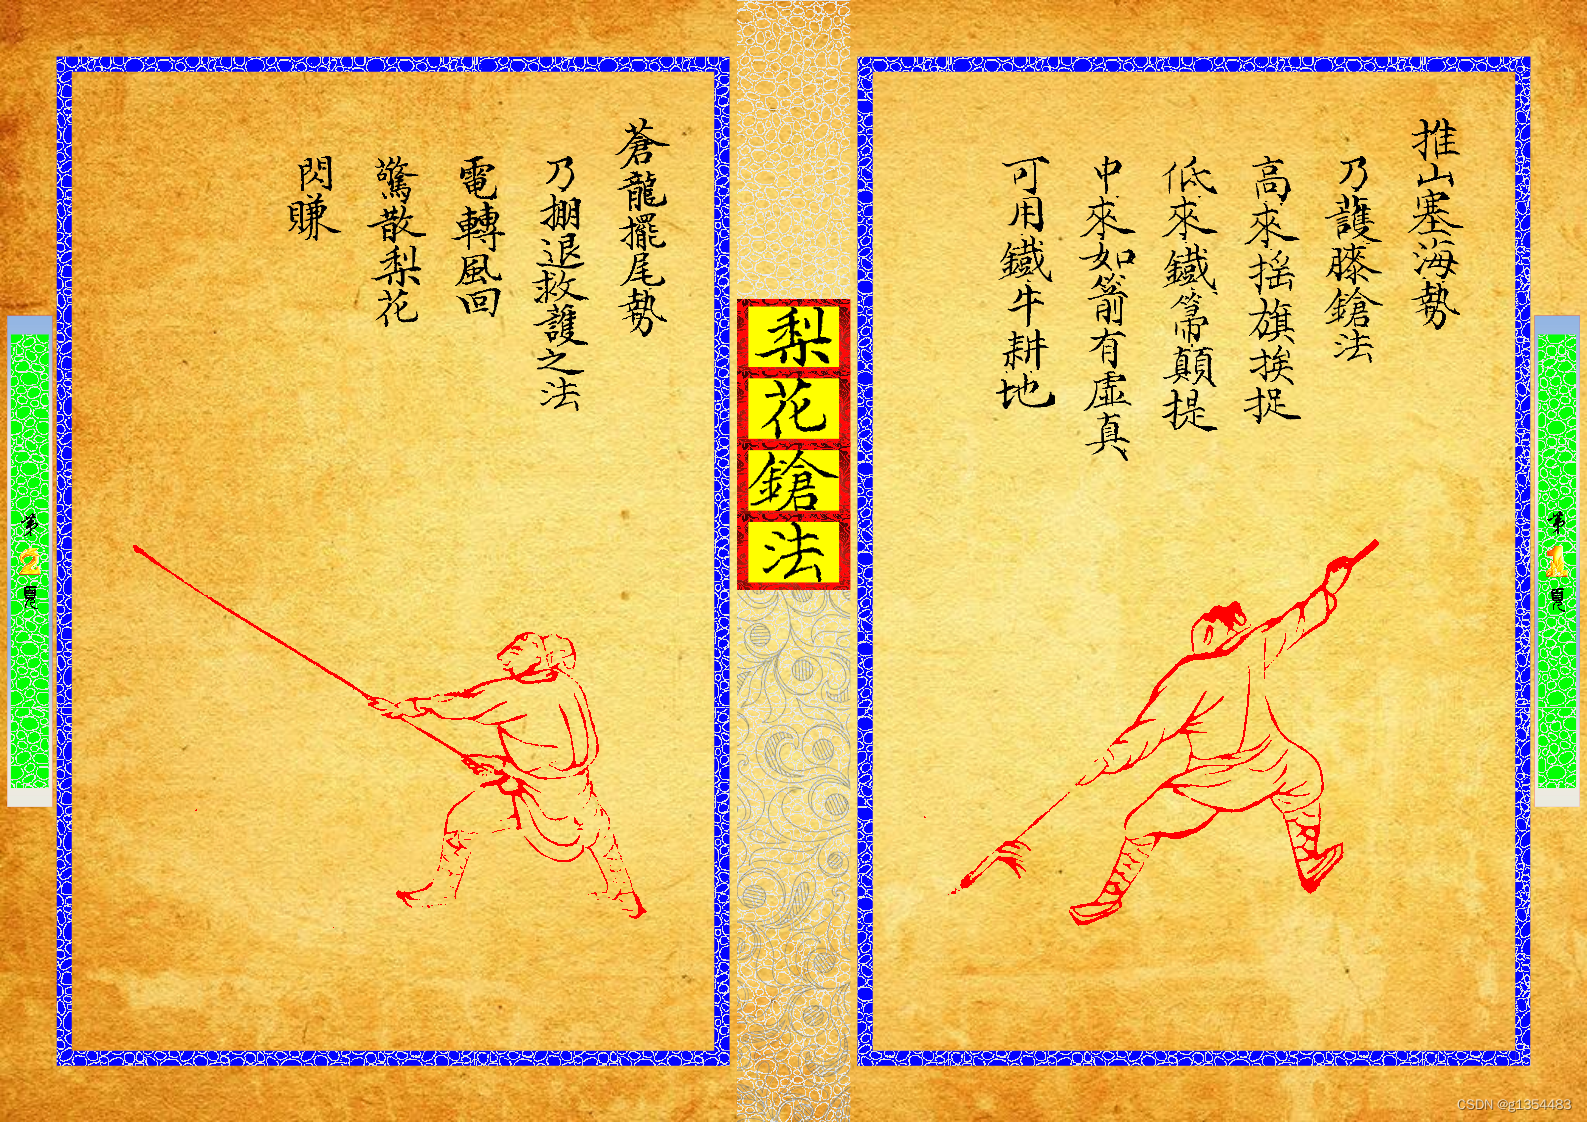 第1頁
推山塞海勢
乃護膝鎗法
高來搖旗挨捉
低來鐵箒顛提
中來如箭有虛真
可用鐵牛耕地
梨花鎗法
蒼龍擺尾勢
乃掤退救護之法
電轉風回
驚散梨花
閃賺
第2頁
CSDN @g1354483